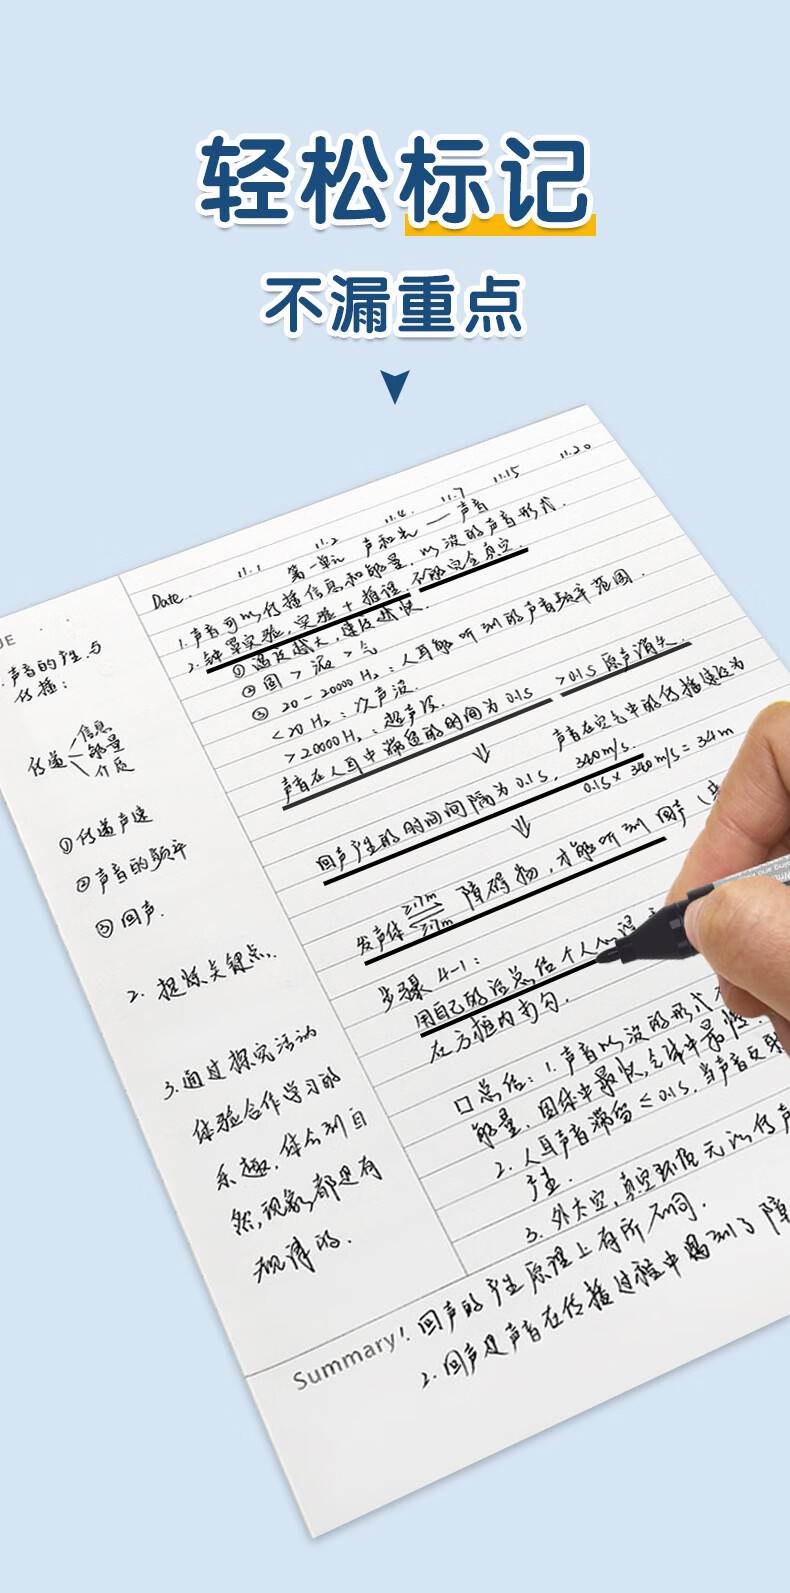 轻松标记
不漏重点
Date.
11.1
11.2
11.4
11.7
11.15
11.20
第一单元 声和光 — 声音
1. 声音可以传播信息和能量, 以波的声音形式.
2. 钟罩实验, 实验+推理, 不能完全真空.
① 温度越大, 速度越快.
② 固 > 液 > 气
③ 20-20000Hz: 人耳能听到的声音频率范围.
<20Hz: 次声波.
>20000Hz: 超声波.
声音在人耳中滞留的时间为0.1s
>0.1s 原声消失.
⇓
声音在空气中的传播速度为
340m/s.
回声产生的时间间隔为0.1s,
0.1s×340m/s=34m
⇓
发声体 ≥17m ≥17m 障碍物, 才能听到回声 (
步骤 4-1:
用自己的话总结个人
在方框内写句.
口总结: 1. 声音以波的形式
能量, 固体中最快, 气体中最慢.
2. 人耳声音滞留≤0.1s, 当声音反射
产生.
3. 外太空, 真空环境无法传声
UE
声音的产生与
传播:
传递
信息
能量
介质
① 传递声速
② 声音的频率
③ 回声.
2. 提炼关键点.
3. 通过探究活动
体验合作学习的
乐趣, 体会到自
然, 现象都是有
规律的.
Summary!
回声的产生原理上有所不同.
2. 回声是声音在传播过程中遇到了障